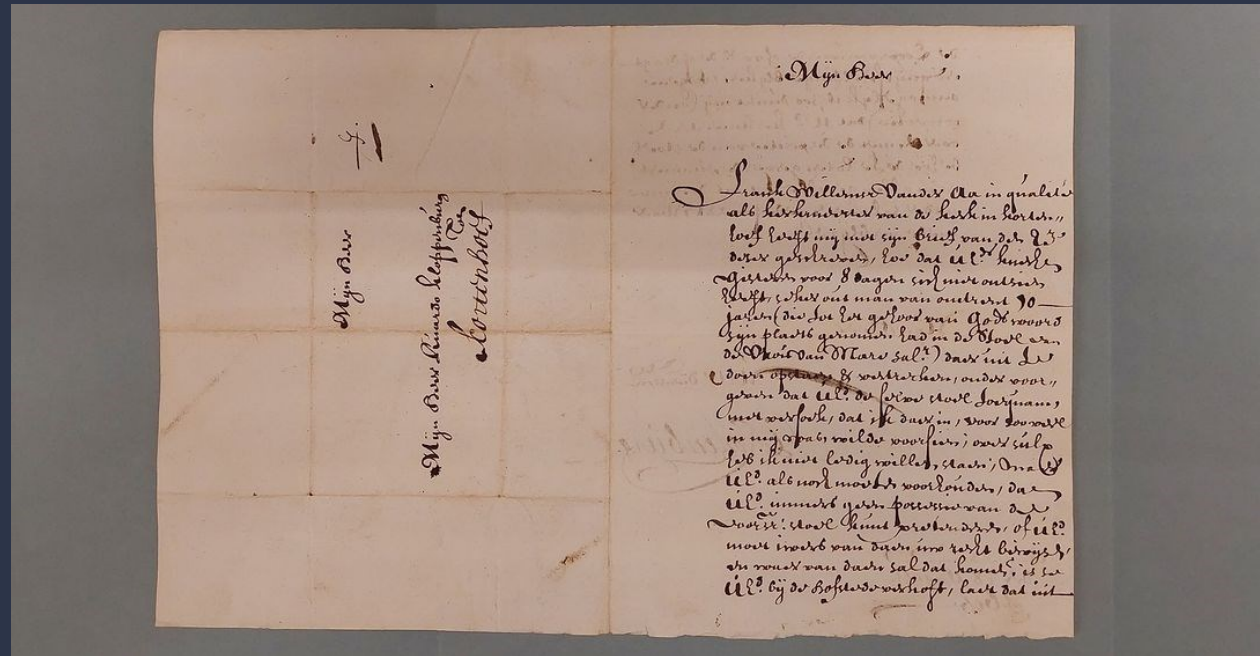 Mijn Heer
Mijn Heer Ruardo Cloppenburg
Tot
Cortenhoef
Mijn Heer
Frank Willemse Vander Aa in qualite
als kerkmeester van de kerk in korten„
hoef heeft mij met sijn brief van den 23
deser geschreven, hoe dat UEd. knecht
gisteren voor 8 dagen sich niet ontsien
heeft, seker out man van ontrent 90
jaren (die tot het gehoor van Gods woord
sijn plaets genomen had in de stoel van
de Vrou van Mare sal.r) daer uit te
doen opstaen & vertrecken, onder voor„
geven dat UEd. de selve stoel toequam,
met versoek, dat ik daer in, voor soo veel
in mij was, wilde voorsien; over sulx
heb ik niet ledig willen staen, ma
UEd. als noch moeten voorhouden, da
UEd. immers geen possessie van de
voorsr. stoel kunt pretenderen, of UEd.
moet iwers van daen uw recht bewijse
en waer van daen sal dat komen, is se
UEd. bij de Hofstede verkoft, laet dat uit